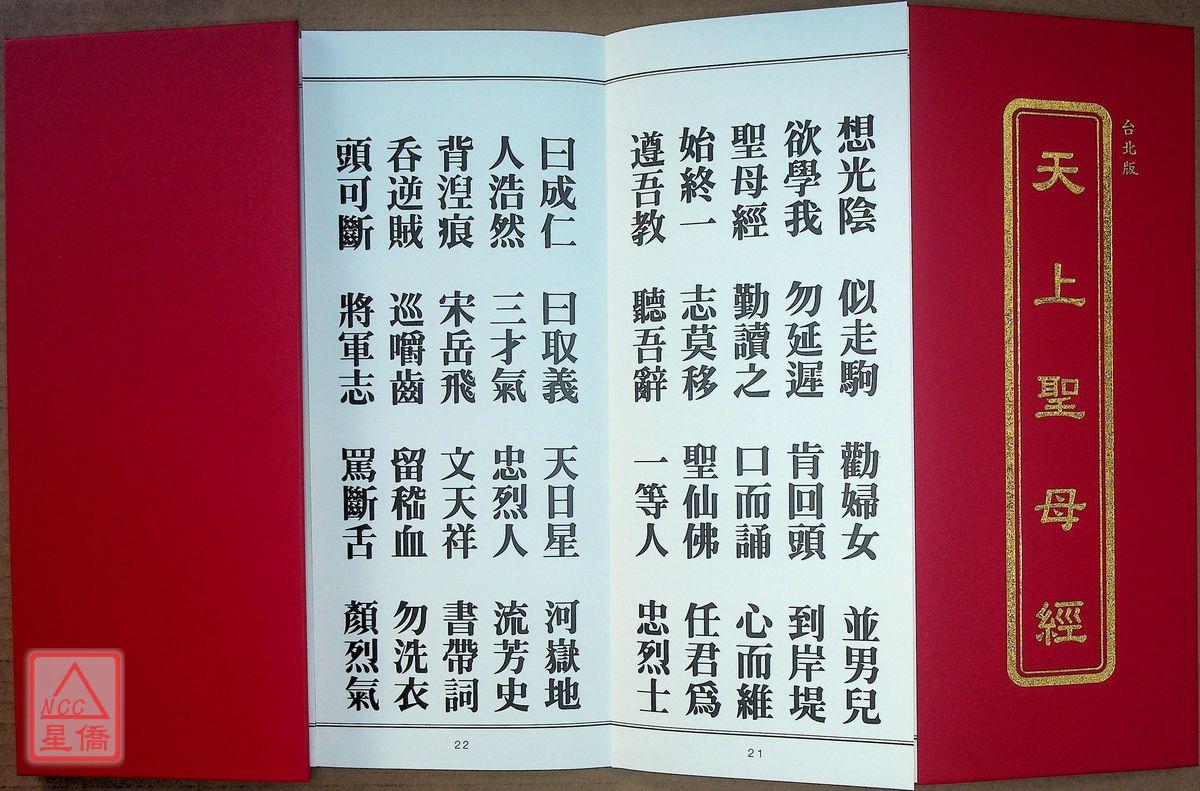 台北版
天上聖母經
想光陰 似走駒 勸婦女 並男兒
欲學我 勿延遲 肯回頭 到岸堤
聖母經 勤讀之 口而誦 心而維
始終一 志莫移 聖仙佛 任君爲
遵吾教 聽吾辭 一等人 忠烈士
21
曰成仁 曰取義 天日星 河嶽地
人浩然 三才氣 忠烈人 流芳史
背湼痕 宋岳飛 文天祥 書帶詞
吞逆賊 巡嚼齒 留嵇血 勿洗衣
頭可斷 將軍志 罵斷舌 顏烈氣
22
NCC
星僑